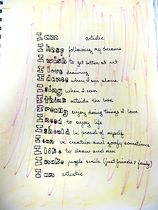 I am artistic
I keep following my dreams
I wish to get better at art
I love drawing
I dance when I am alone
I sing when I am
I think outside the box
I really enjoy doing things I love
I need to enjoy life
I should be proud of myself
I can be creative and goofy sometimes
I like to draw and
I make people smile (just friends & family)
I am artistic